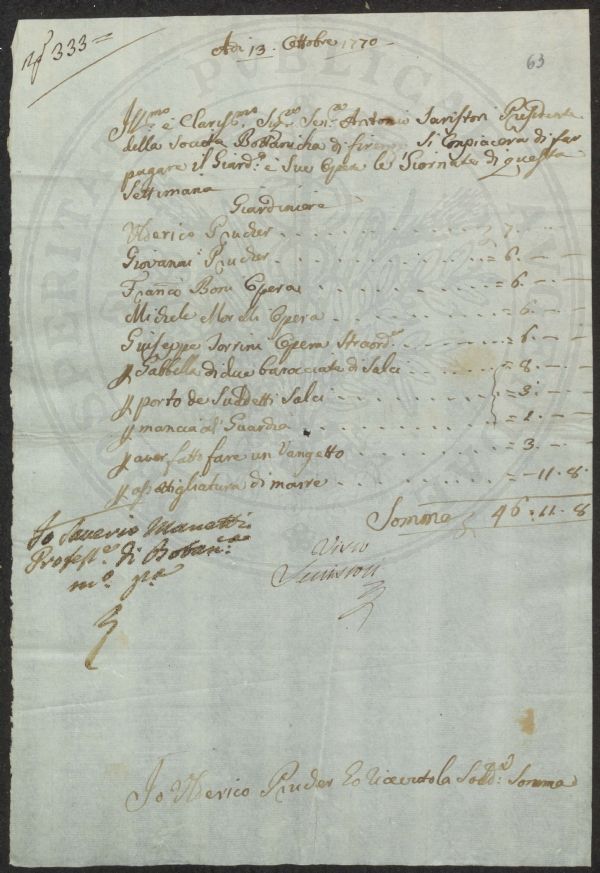 nº 333=
Adì 13. Ottobre 1770
63
Ill:mo e Clariss:mo Sig:re Sen:re Antonio Presidente
della Società Bottanicha di firenze Si Conpiacerà di far
pagare il Giard:re e Sue Opere le Giornate di questa
Settimana
Giardiniere
Ulderico Prucher . . . 7. — —
Giovanni Prucher . . . = 6. — —
Franc:o Boni Opera . . . = 6. — —
Michele Morelli Opera . . . = 6. — —
Guiseppe Torrini Opera Straord:a . . . = 6. — —
p Gabbella di due barocciate di Salci . . . = 8. — —
p porto de Suddetti Salci . . . = 3. — —
p mancia al Guardia . . . = 1. — —
p aver fatto fare un Vangetto . . . = 3. — —
p di marre . . . = — 11. 8.
Somma 46. 11. 8
Io Saverio Manetti
Profess:e di Botan:ca
m:o p:a
Visto
Io Ulderico Prucher ò riceuto la Sudd:a Somma